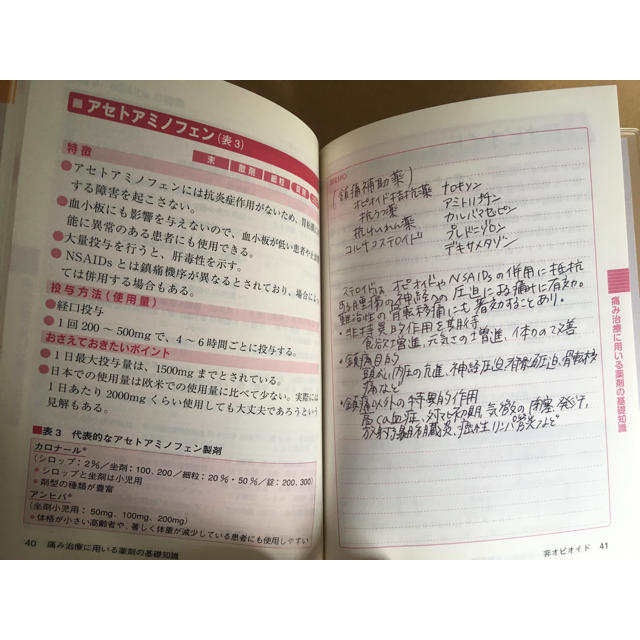 ■アセトアミノフェン(表3)
末 散剤 細粒 錠剤
特徴
●アセトアミノフェンには抗炎症作用がないため、胃粘膜
する障害を起こさない。
●血小板にも影響を与えないので、血小板が低い患者や
能に異常のある患者にも使用できる。
●大量投与を行うと、肝毒性を示す。
●NSAIDsとは鎮痛機序が異なるとされており、場合によ
ては併用する場合もある。
投与方法(使用量)
●経口投与
●1回200～500mgで、4～6時間ごとに投与する。
おさえておきたいポイント
●1日最大投与量は、1500mgまでとされている。
●日本での使用量は欧米での使用量に比べて少ない。実際には
1日あたり2000mgくらい使用しても大丈夫であろうという
見解もある。
■表3 代表的なアセトアミノフェン製剤
カロナール®
(シロップ:2%/坐剤:100、200/細粒:20%・50%/錠:200、300)
＊シロップと坐剤は小児用
＊剤型の種類が豊富
アンヒバ®
(坐剤小児用:50mg、100mg、200mg)
＊体格が小さい高齢者や、著しく体重が減少している患者にも使用しやすい
40 痛み治療に用いる薬剤の基礎知識
MEMO
(鎮痛補助薬)
オピオイド拮抗薬 ナロキソン
抗うつ薬 アミトリプチリン
抗けいれん薬 カルバマゼピン
コルチコステロイド プレドニゾロン
デキサメタゾン
ステロイドは オピオイドやNSAIDsの併用に抵抗
ある腫瘍の神経への圧迫による痛みに有効。
難治性の骨転移痛にも著効することあり。
・非特異的作用を期待
食欲増進、元気さの増進、体力の改善
・鎮痛目的
頭蓋内圧の亢進、神経圧迫、脊髄圧迫、骨転移
痛など
・鎮痛以外の特異的作用
高Ca血症、気道の閉塞、発汗、
放射線 癌性リンパ管炎など
痛み治療に用いる薬剤の基礎知識
非オピオイド 41